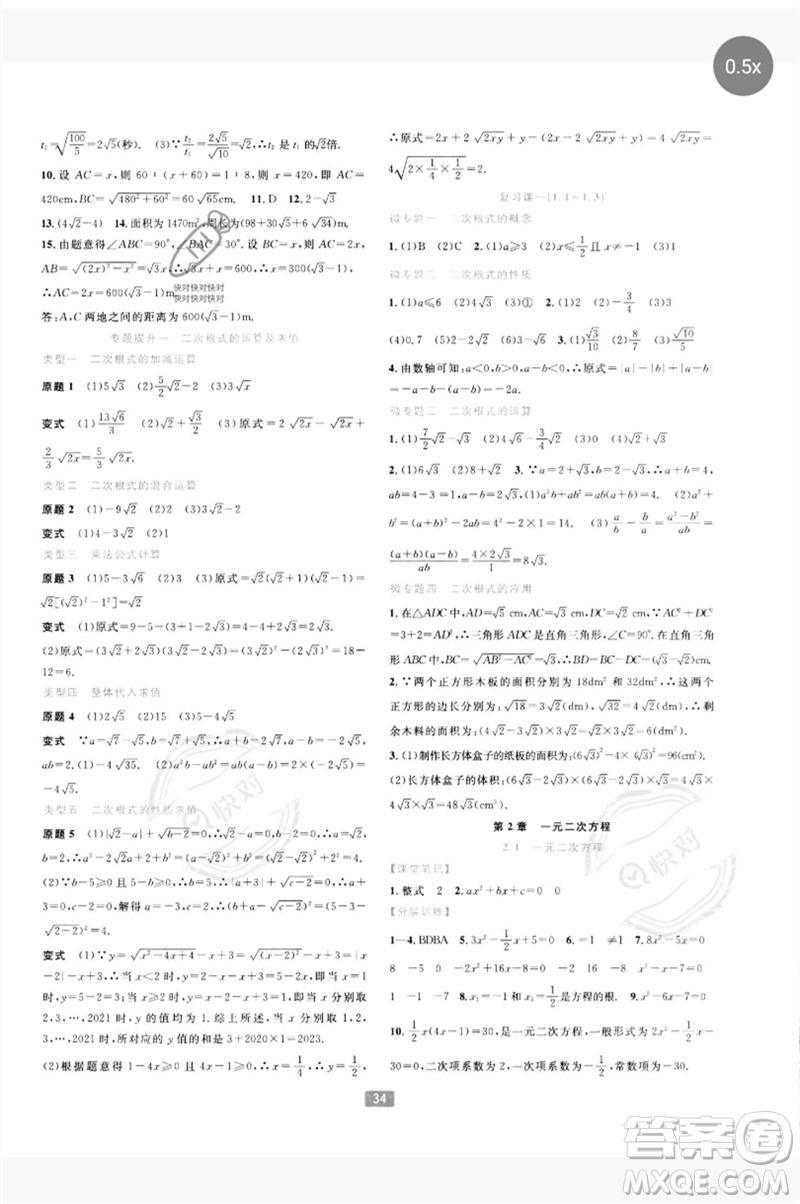 0.5x
t₂=√(100/5)=2√5(秒). (3)∵t₂/t₁=2√5/√10=√2,∴t₂是t₁的√2倍.
10. 设AC=x,则60∶(x+60)=1∶8,则x=420,即AC=
420cm,BC=√(480²+60²)=60√65cm. 11. D 12. 2-√3
13. (4√2-4) 14. 面积为1470m²,周长为(98+30√5+6√34)m.
15. 由题意得∠ABC=90°,∠BAC=30°. 设BC=x,则AC=2x,
AB=√((2x)²-x²)=√3x,∴√3x+x=600,∴x=300(√3-1),
∴AC=2x=600(√3-1)m.
快对快对快对
快对快对快对
答:A,C两地之间的距离为600(√3-1)m.
专题提升一 二次根式的运算及求值
类型一 二次根式的加减运算
原题1 (1)5√3 (2)(5/2)√2-2 (3)3√3
变式 (1)13√6/3 (2)√2 (3)原式=2√(2x)-√(2x)+
(2/3)√(2x)=(5/3)√(2x).
类型二 二次根式的混合运算
原题2 (1)-9√2 (2)4 (3)√2-2
变式 (1)4-3√2 (2)1
类型三 乘法公式计算
原题3 (1)5-3√3 (2)3 (3)原式=√2(√2+1)(√2-1)=
√2[(√2)²-1²]=√2.
变式 (1)原式=9-5-(3+1-2√3)=4-4+2√3=2√3.
(2)原式=(3√2+2√3)(3√2-2√3)=(3√2)²-(2√3)²=18-
12=6.
类型四 整体代入求值
原题4 (1)2√5 (2)15 (3)-4√5
变式 ∵a=√7-√5,b=√7+√5,∴a+b=2√7,a-b=-2√5,
ab=2. (1)-4√35. (2)a²-ab+b²=(a+b)²-3ab=22. (3)
-4√5.
类型五 二次根式的性质求值
原题5 (1)∵|√2-a|+√(b-2)=0,∴√2-a=0,b-2=0,∴a=
√2,b=2,∴a²-2√2a+2+b²=(a-√2)²+b²=0+2²=4.
(2)∵b-5≥0且5-b≥0,∴b=5,整理,得|a-√2|+√(c-2)=
0,∴a-√2=0,c-2=0,解得a=√2,c=2.
变式 (1)∵y=√(x²-4x+4)-x+3=√((x-2)²)-x+3=|x
-2|-x+3,∴当x<2时,y=2-x-x+3=5-2x,即当x=1
时,y=5-2=3;当x≥2时,y=x-2-x+3=1,即当x分别取
2,3,…,2021时,y的值均为1. 综上所述,当x分别取1,2,
3,…,2021时,所对应的y值的和是3+2020×1=2023.
(2)根据题意得1-4x≥0,4x-1≥0,∴x=1/4,∴y=1/4,
∴原式=2x+2√(2xy)+y-(2x-2√(2xy)+y)=4√(2xy)=
4√(2×1/4×1/4)=2.
复习课一(1.1~1.3)
微专题一 二次根式的概念
1. (1)B (2)C 2. (1)a≥3 (2)x≤1/2且x≠-1 (3)1
微专题二 二次根式的性质
1. (1)a≤6 (2)4√3 (3)① 2. (1)2 (2)-3/4 (3)
4. 由数轴可知:a<0,b>0,a-b<0,∴原式=|a|-|b|+|a-b|
=-a-b-(a-b)=-a-b-a+b=-2a.
微专题三 二次根式的运算
1. (1)(7/2)√2-√3 (2)√6-(3/4)√2 (3)0 (4)√3
ab=4-3=1. (1)a²b+ab²=ab(a+b)=1×4=4.
微专题四 二次根式的应用
1. 在△ADC中,AD=√5 cm,AC=√3 cm,CD=√2 cm. ∵AC²+CD²
=3+2=AD²,∴三角形ACD为直角三角形,∠C=90°. 在Rt△ABC
中,BC=√(AB²-AC²)=√((3√3)²-(√3)²)=2√6(cm).
2. ∵两个正方形木板的面积分别为18dm²和32dm²,∴这两
个正方形的边长分别为√18=3√2(dm),√32=4√2(dm),∴剩
余木料的面积为(4√2-3√2)×3√2=√2×3√2=6(dm²).
3. (1)制作长方体盒子的纸板的面积为(6√3)²-4×(√3)²=96(cm²).
(2)长方体盒子的体积:(6√3-2√3)(6√3-2√3)×√3=4√3×
4√3×√3=48√3(cm³).
第2章 一元二次方程
2.1 一元二次方程
【课堂笔记】
1. 整式 2 2. ax²+bx+c=0 0
【分层训练】
1—4. BDBA 5. 3x²-(1/2)x+5=0 6. =1 ≠1 7. 8x²-5x=0
8 -5 0 -2x²+16x-7=0 -2 16 -7 8. x²-x=0
9. 1/2和x₃=-1是方程的根.
10. (1/2)x(4x-1)=30,是一元二次方程,一般形式为2x²-(1/2)x
-30=0,二次项系数为2,一次项系数为-1/2,常数项为-30.
34
快对
快对
答案圈
MXQE.COM